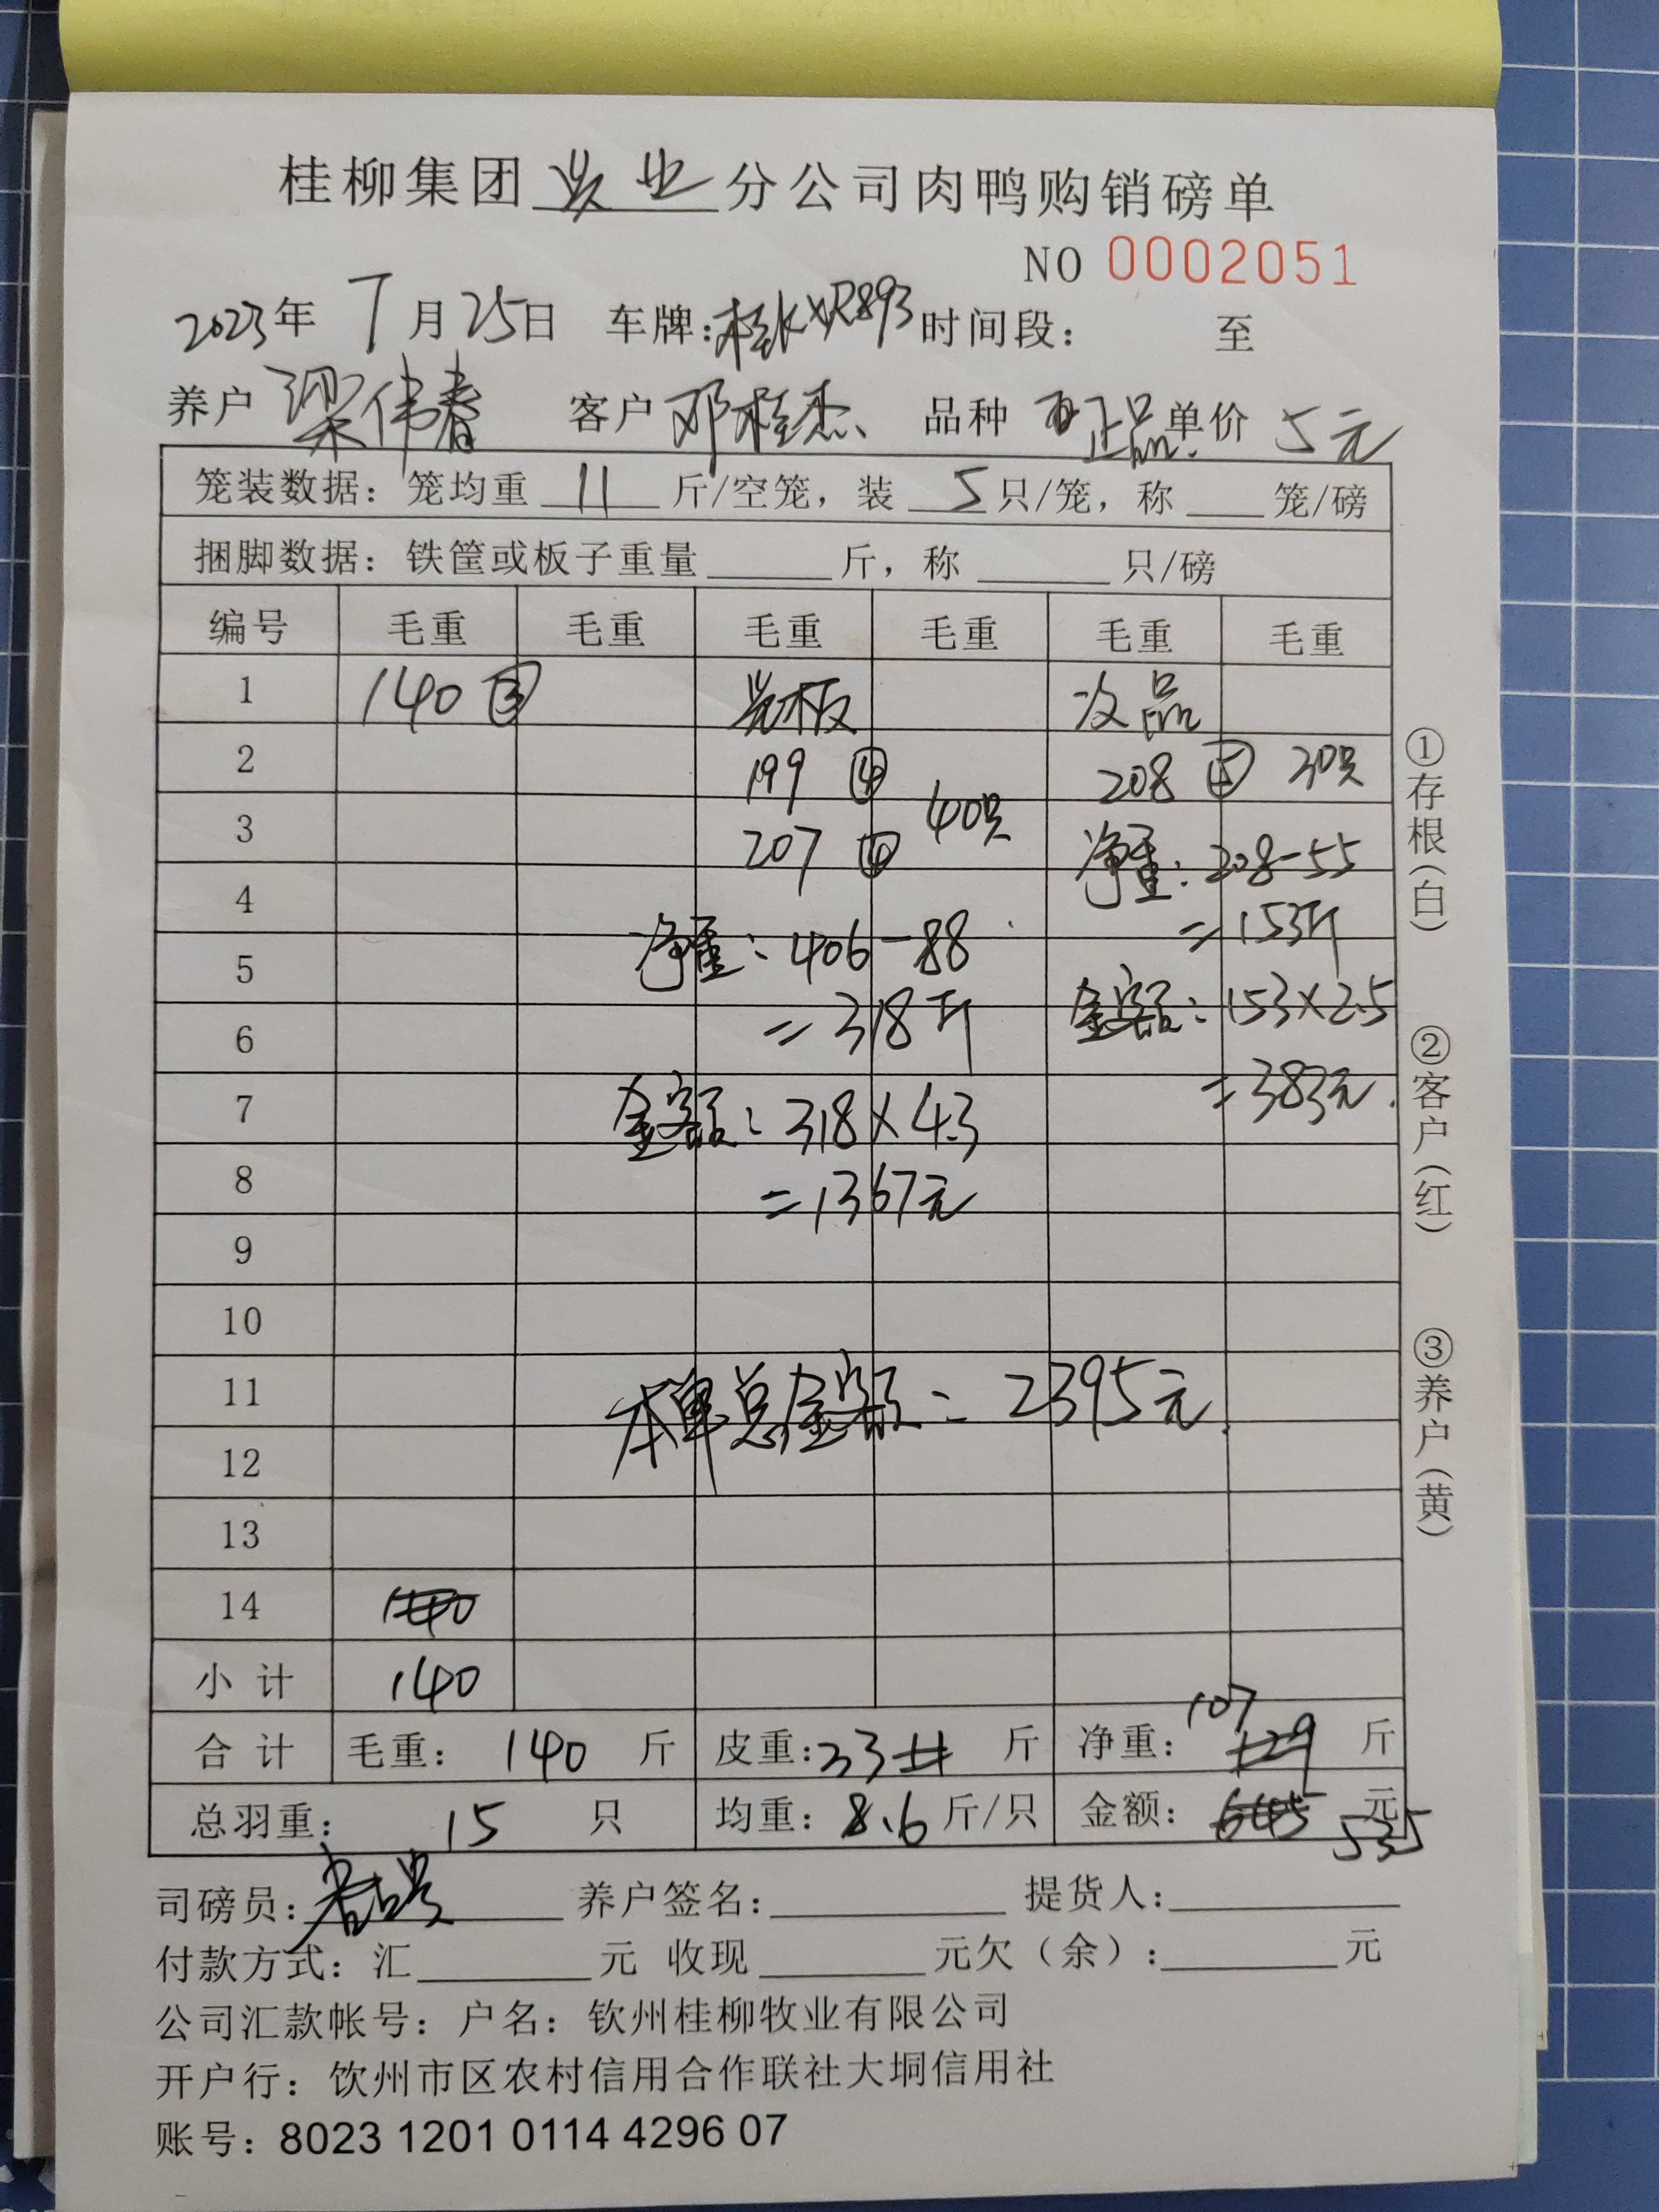 桂柳集团 业 分公司肉鸭购销磅单
NO 0002051
2023年 7月25日 车牌: 时间段: 至
养户 梁伟春 客户 邓桂杰 品种 正品 单价 5元
笼装数据: 笼均重 11 斤/空笼, 装 5 只/笼, 称 笼/磅
捆脚数据: 铁筐或板子重量 斤, 称 只/磅
编号 毛重 毛重 毛重 毛重 毛重 毛重
1 140 ③ 光板 次品
2 199 ④ 208 ⑤ 30只
3 207 ④ 40只 净重: 208-55
4 =153斤
5 净重: 406-88 金额: 153×2.5
6 =318斤 =383元.
7 金额: 318×4.3
8 =1367元
9
10
11 本单总金额= 2395元.
12
13
14 140
小计 140
合计 毛重: 140 斤 皮重: 33 11 斤 净重: 107 129 斤
总羽重: 15 只 均重: 8.6 斤/只 金额: 645 元 535
司磅员: 养户签名: 提货人:
付款方式: 汇 元 收现 元欠(余): 元
公司汇款帐号: 户名: 钦州桂柳牧业有限公司
开户行: 钦州市区农村信用合作联社大垌信用社
账号: 8023 1201 0114 4296 07
①存根(白) ②客户(红) ③养户(黄)